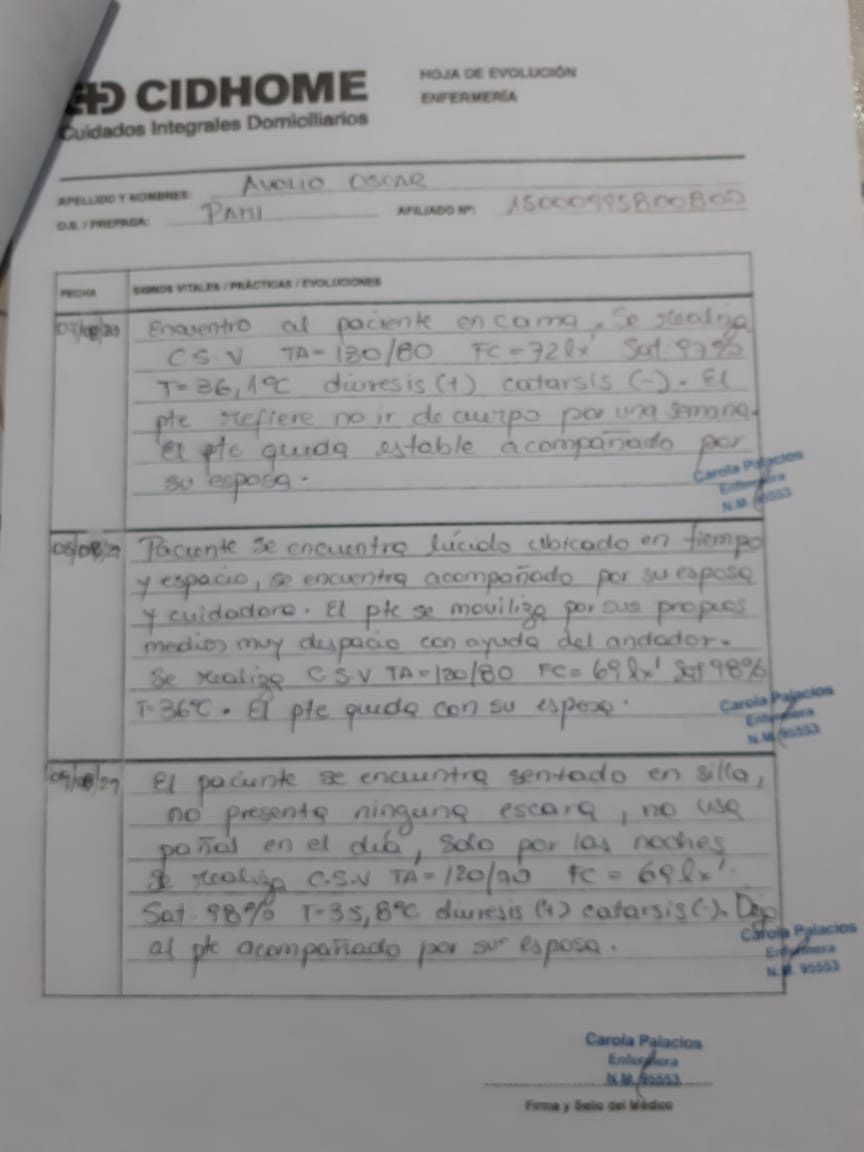 CIDHOME
Cuidados Integrales Domiciliarios
HOJA DE EVOLUCIÓN
ENFERMERÍA
APELLIDO Y NOMBRES: AVOLIO OSCAR
O.S. / PREPAGA: PAMI AFILIADO Nº: 15000995800800
FECHA SIGNOS VITALES / PRÁCTICAS / EVOLUCIONES
Encuentro al paciente en cama. Se realiza
C.S.V TA=130/80 FC=72lx' Sat:97%
T=36,1ºC diuresis (+) catarsis (-). El
pte refiere no ir de cuerpo por una semana.
El pte queda estable acompañado por
su esposa.
Carola Palacios
Enfermera
N.M. 95553
Paciente se encuentra lúcido ubicado en tiempo
y espacio, se encuentra acompañado por su esposa
y cuidadora. El pte se moviliza por sus propios
medios muy despacio con ayuda del andador.
Se realiza C.S.V TA=120/80 FC=69lx' Sat 98%
T=36ºC. El pte queda con su esposa.
Carola Palacios
Enfermera
N.M. 95553
El paciente se encuentra sentado en silla,
no presenta ninguna escara, no usa
pañal en el día, solo por las noches
Se realiza C.S.V TA=120/70 FC=69lx'.
Sat:98% T=35,8ºC diuresis (+) catarsis (-). Dejo
al pte acompañado por su esposa.
Carola Palacios
Enfermera
N.M. 95553
Carola Palacios
Enfermera
N.M. 95553
Firma y Sello del Médico